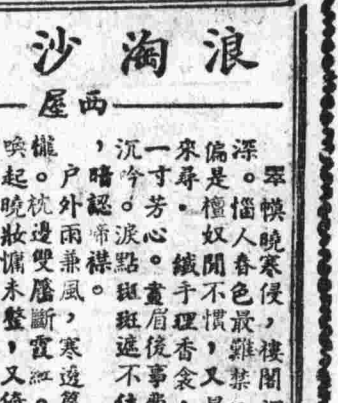 浪淘沙
西屋
翠幙曉寒侵,樓閣
深。惱人春色最難禁
偏是檀奴閒不慣,又
來尋。纖手理香衾
一寸芳心。畫眉後事
沉吟。淚點斑斑遮不
,暗認啼襟。
戶外雨兼風,寒透
櫳。枕邊雙靨斷霞紅
喚起曉妝慵未整,又